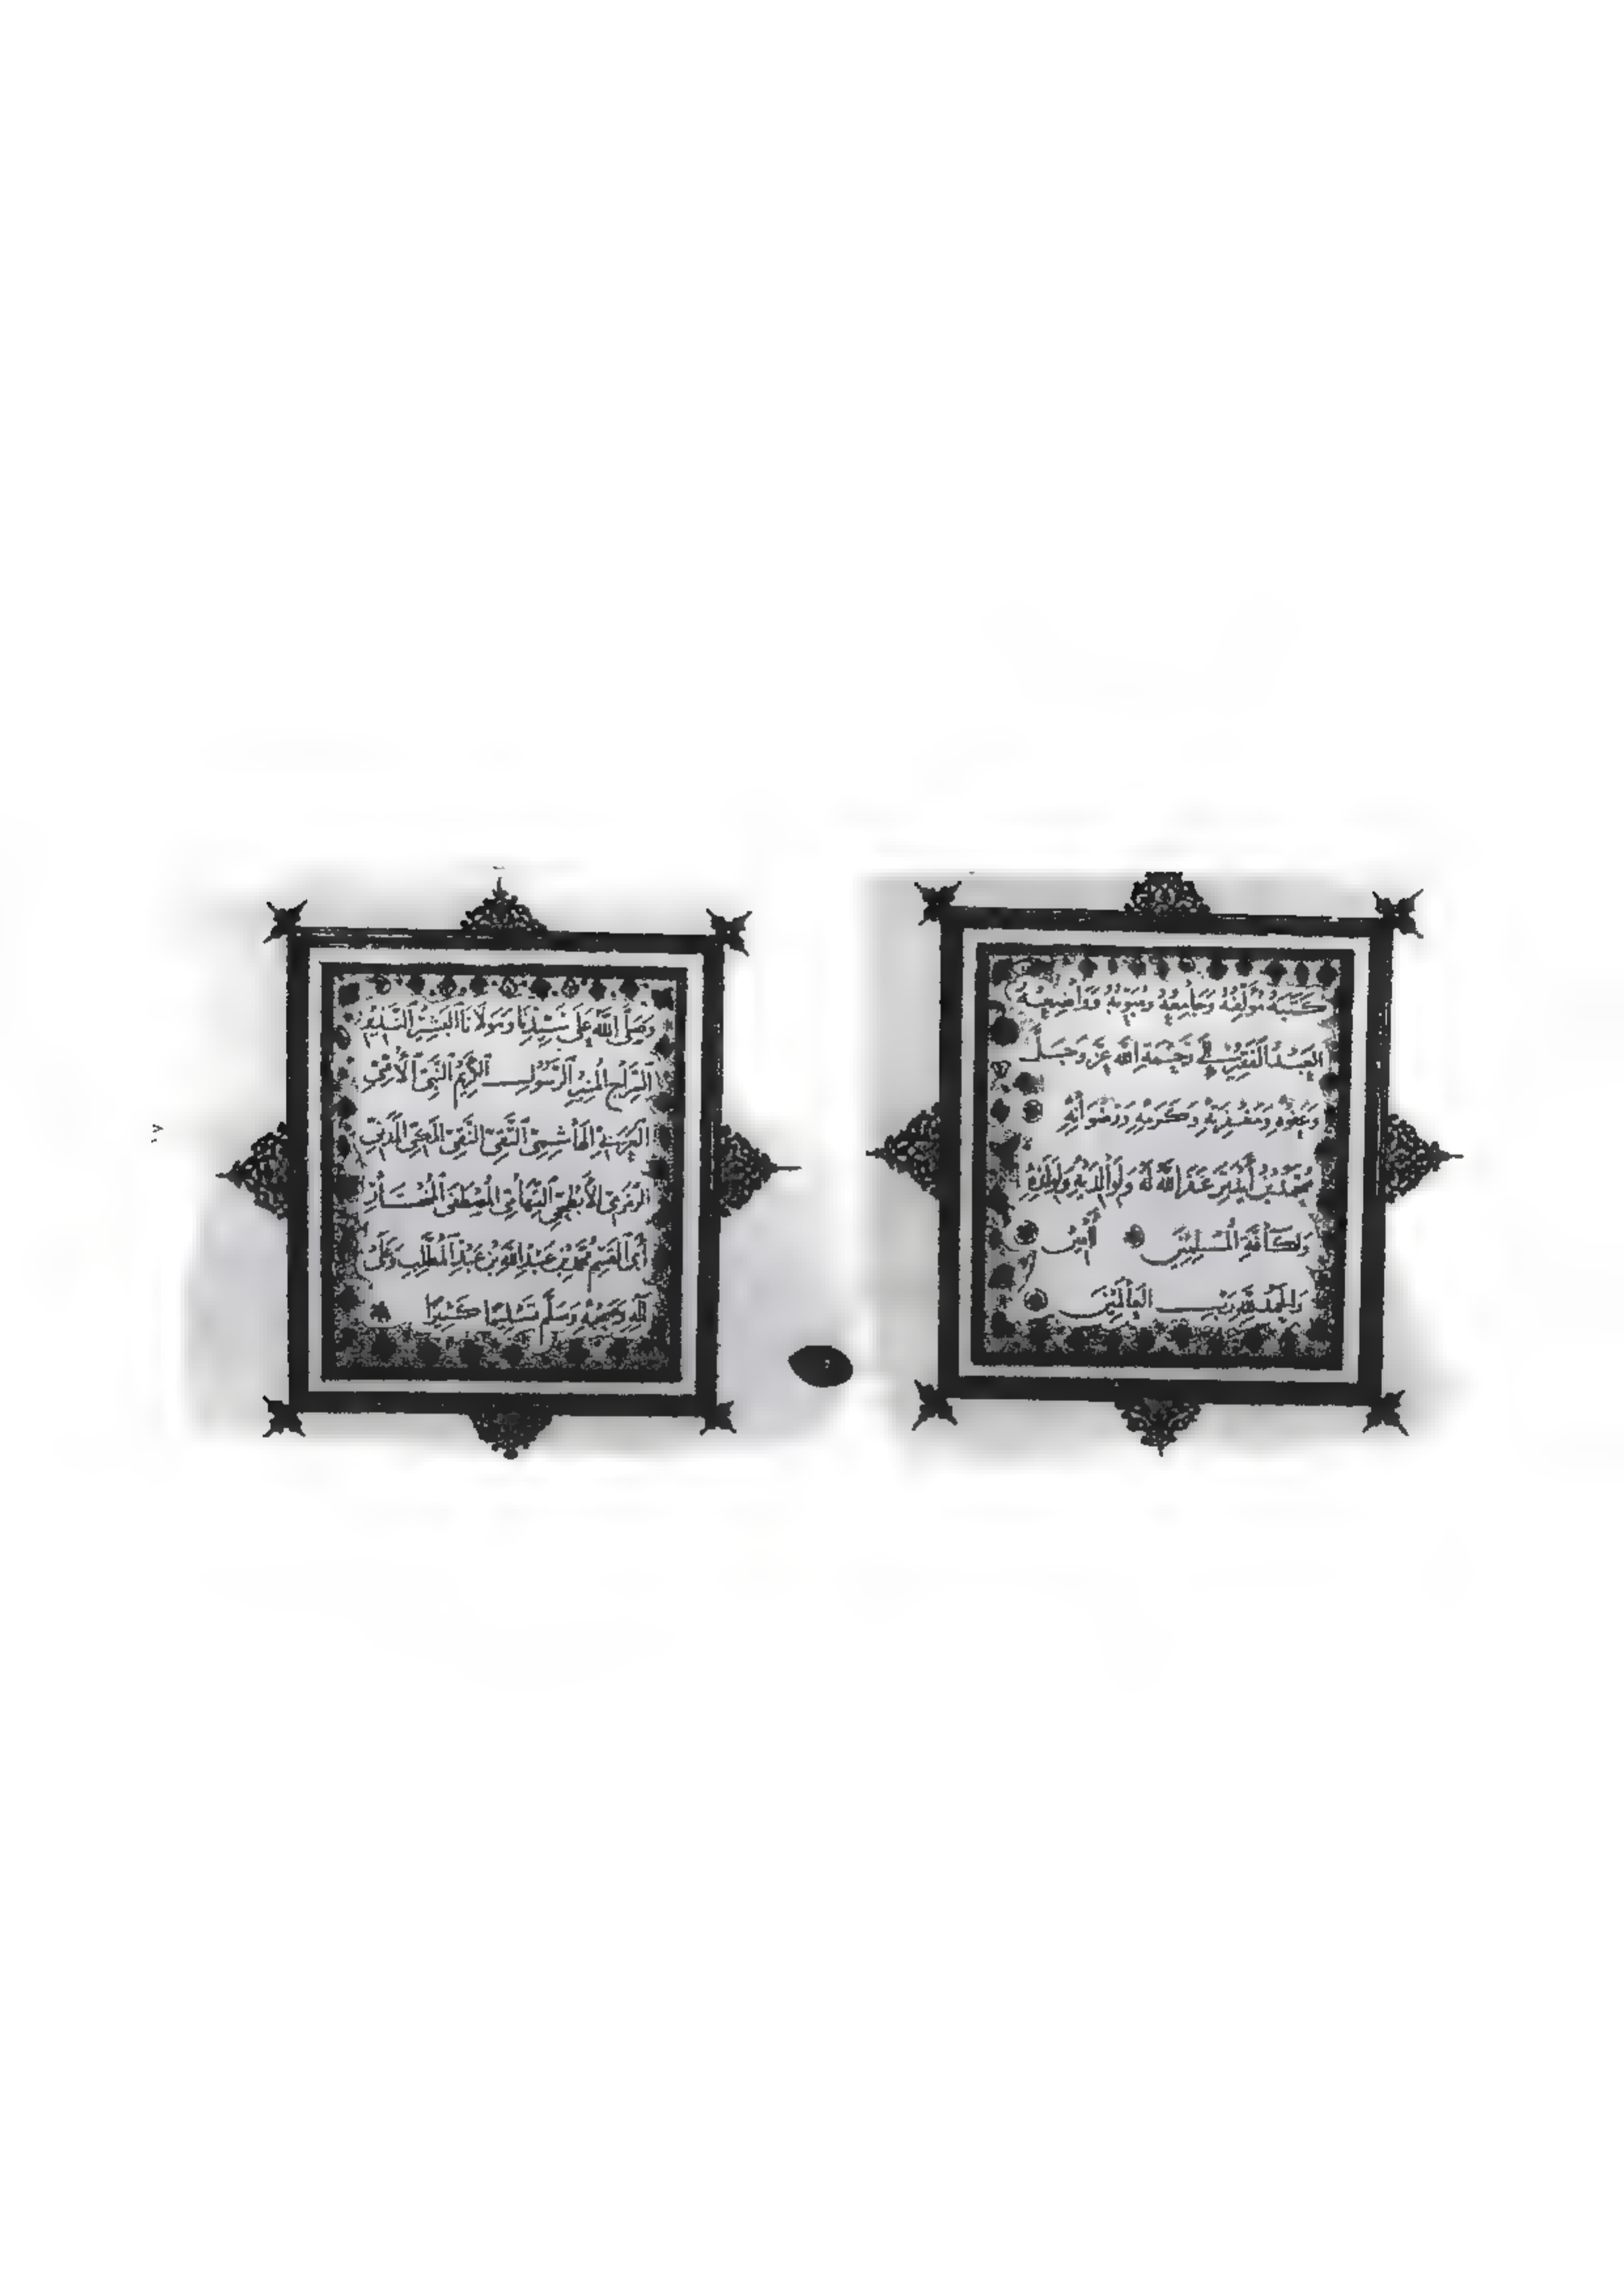 كَتَبَهُ مُؤَلِّفُهُ وَجَامِعُهُ وَمُبَوِّبُهُ وَوَاضِعُهُ
العَبْدُ الفَقِيرُ إِلَى رَحْمَةِ اللَّهِ عَزَّ وَجَلَّ
وَعَفْوِهِ وَمَغْفِرَتِهِ وَكَرَمِهِ وَرِضْوَانِهِ
مُحَمَّدُ بْنُ غَفَرَ اللَّهُ لَهُ وَلِوَالِدَيْهِ
وَلِكَافَّةِ الْمُسْلِمِينَ آمِينَ
وَالحَمْدُ لِلَّهِ رَبِّ العَالَمِينَ
وَصَلَّى اللَّهُ عَلَى سَيِّدِنَا وَمَوْلَانَا البَشِيرِ النَّذِيرِ
السِّرَاجِ الْمُنِيرِ الرَّسُولِ الكَرِيمِ النَّبِيِّ الأُمِّيِّ
العَرَبِيِّ الهَاشِمِيِّ التَّقِيِّ النَّقِيِّ المَكِّيِّ المَدَنِيِّ
الزَّمْزَمِيِّ الأَبْطَحِيِّ التِّهَامِيِّ الْمُصْطَفَى الْمُخْتَارِ
أَبِي القَاسِمِ مُحَمَّدِ بْنِ عَبْدِ اللَّهِ بْنِ عَبْدِ الْمُطَّلِبِ وَعَلَى
آلِهِ وَصَحْبِهِ وَسَلَّمَ تَسْلِيمًا كَثِيرًا